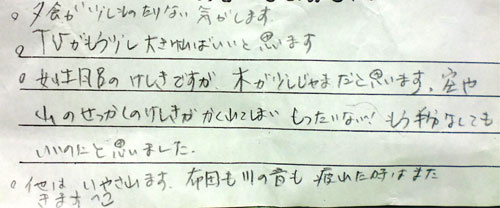 ○ 夕食が少しものたりない気がします
○ TVがもう少し大きければいいと思います
○ 女性風呂のけしきですが、木が少しじゃまだと思います。空や
山のせっかくのけしきがかくれてしまいもったいない!もう少しなくしても
いいのにと思いました。
○ 他はいやされます、布団も川の音も 疲れた時はまた
きます